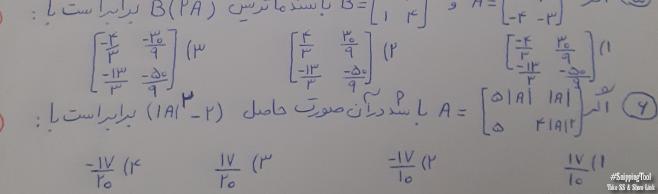 و A = [ ] -۴ -۳ و B = [ ] ۱ ۴ باشند ماتریس B(۲A) برابر است با :
۱) [-۴/۳ ۳۰/۹ -۱۳/۳ -۵۰/۹] ۲) [۴/۳ ۳۰/۹ -۱۳/۳ -۵۰/۹] ۳) [-۴/۳ -۳۰/۹ -۱۳/۳ -۵۰/۹]
۶) اگر A = [۵|A| |A| ۵ ۴|A|²] باشد در آن صورت حاصل (|A|³-۲) برابر است با :
۱) ۱۷/۱۰ ۲) -۱۷/۱۰ ۳) ۱۷/۲۰ ۴) -۱۷/۲۰
#SnippingTool
Take SS & Share Link